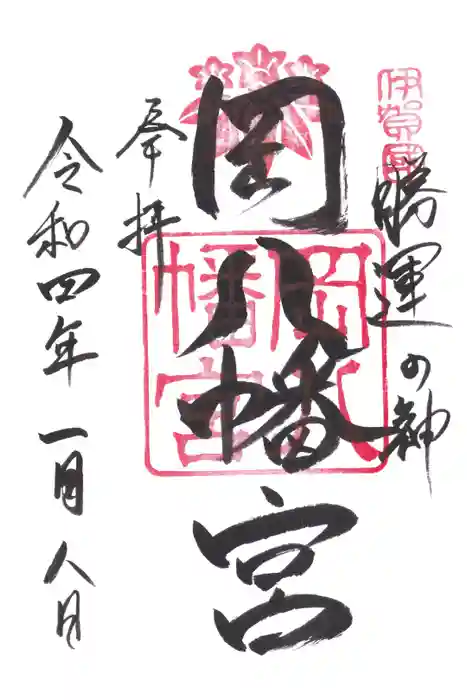 伊賀國
勝運の神
岡八幡宮
岡八幡宮
奉拝
令和四年 一月八日